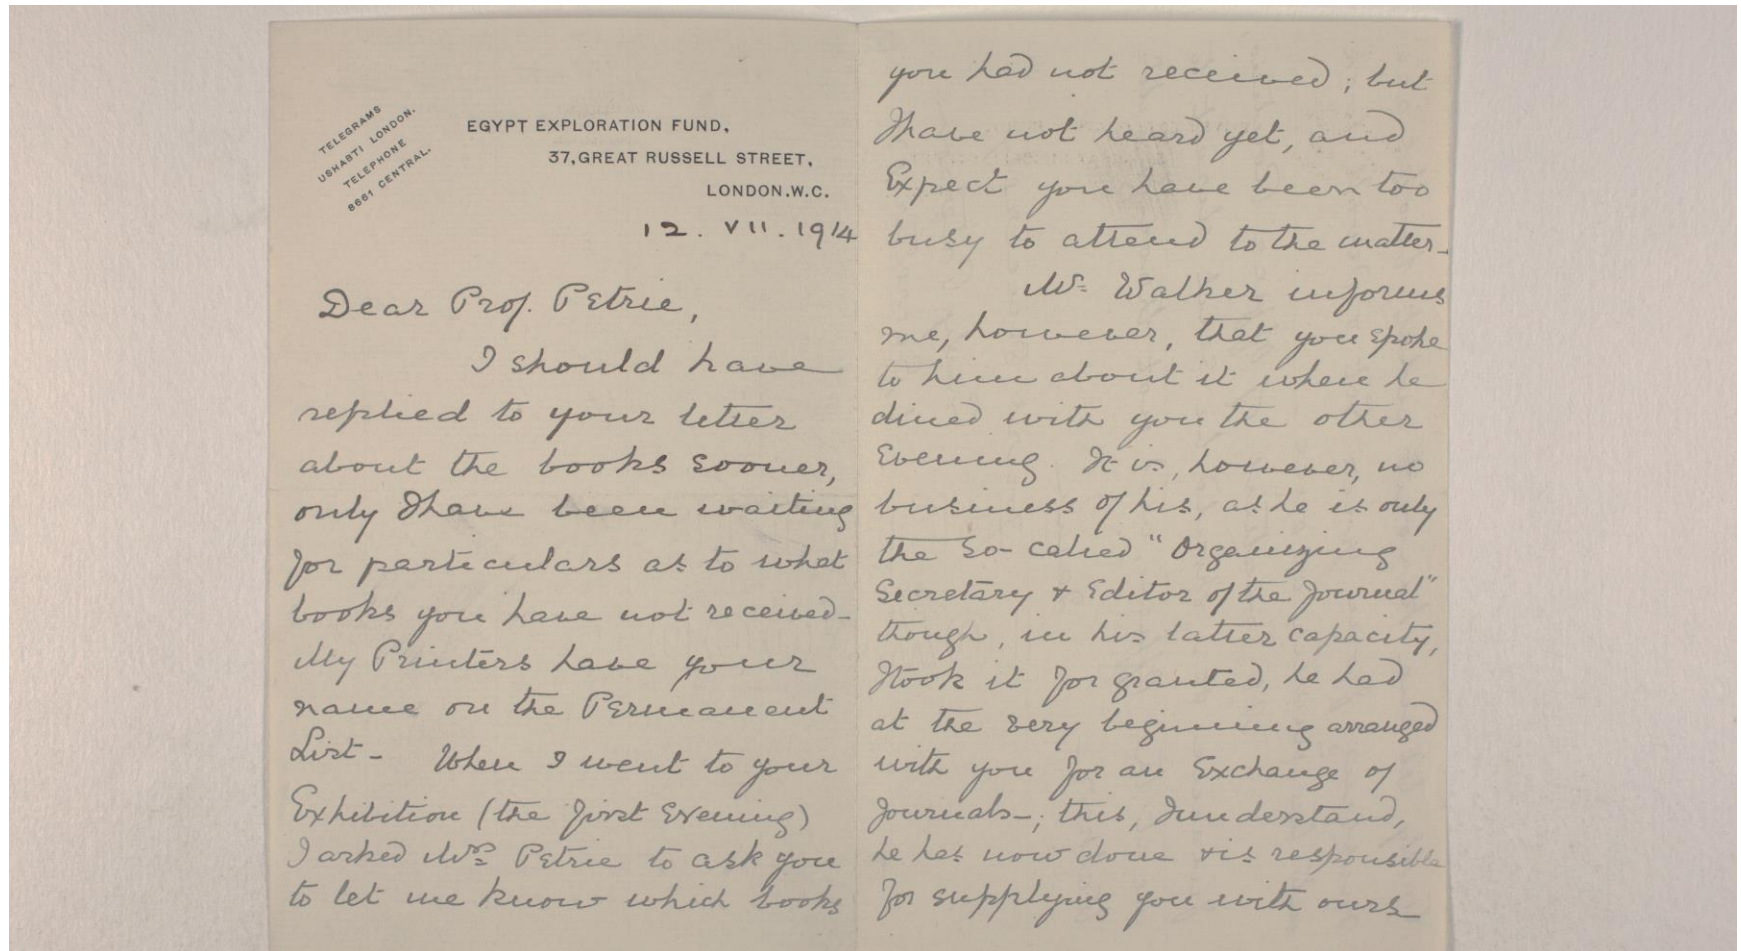 TELEGRAMS
USHABTI LONDON.
TELEPHONE
8661 CENTRAL.
EGYPT EXPLORATION FUND,
37, GREAT RUSSELL STREET,
LONDON. W.C.
12. VII. 1914
Dear Prof. Petrie,
I should have
replied to your letter
about the books sooner,
only I have been waiting
for particulars as to what
books you have not received–
My Printers have your
name on the Permanent
List– When I went to your
Exhibition (the first Evening)
I asked Mrs Petrie to ask you
to let me know which books
you had not received; but
I have not heard yet, and
Expect you have been too
busy to attend to the matter–
Mr Walker informs
me, however, that you spoke
to him about it when he
dined with you the other
Evening. It is, however, no
business of his, as he is only
the so-called "Organizing
Secretary & Editor of the Journal"
though, in his latter capacity,
I took it for granted, he had
at the very beginning arranged
with you for an Exchange of
Journals–; this, I understand,
he has now done & is responsible
for supplying you with ours